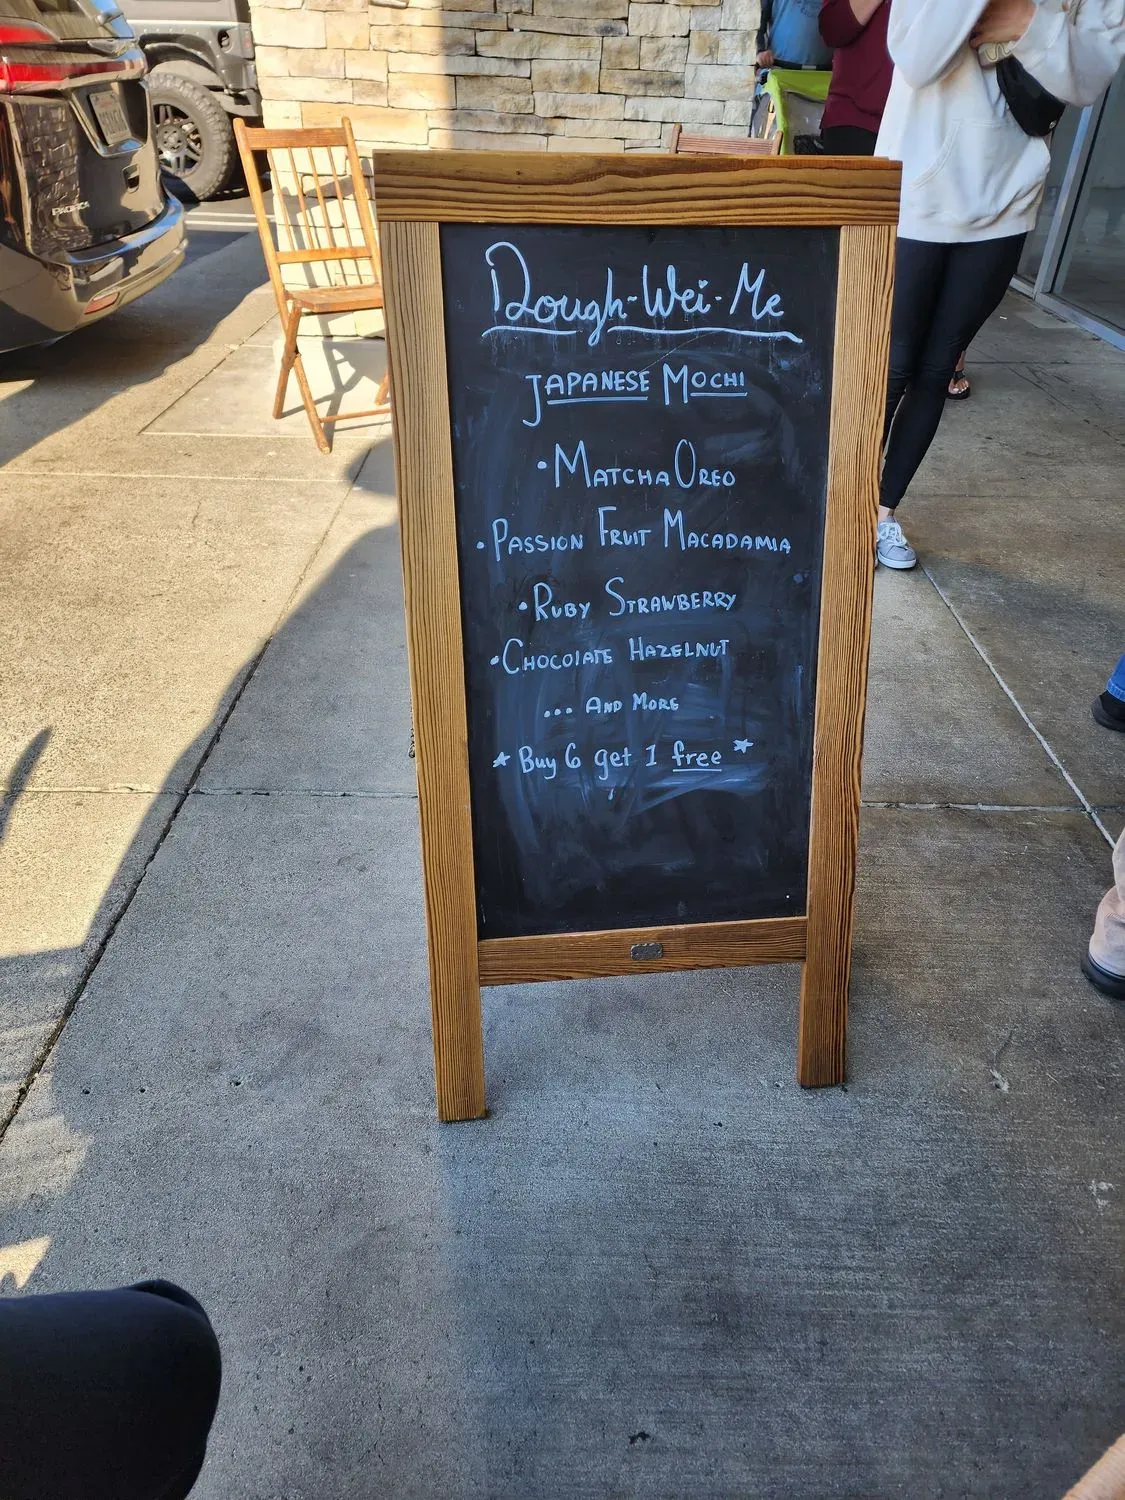 Dough-Wei-Me
JAPANESE MOCHI
• MATCHA OREO
• PASSION FRUIT MACADAMIA
• RUBY STRAWBERRY
• CHOCOLATE HAZELNUT
... AND MORE
★ Buy 6 get 1 free ★